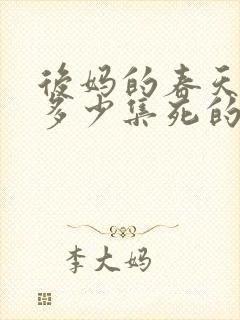 後妈的春天
多少集死的
李大妈